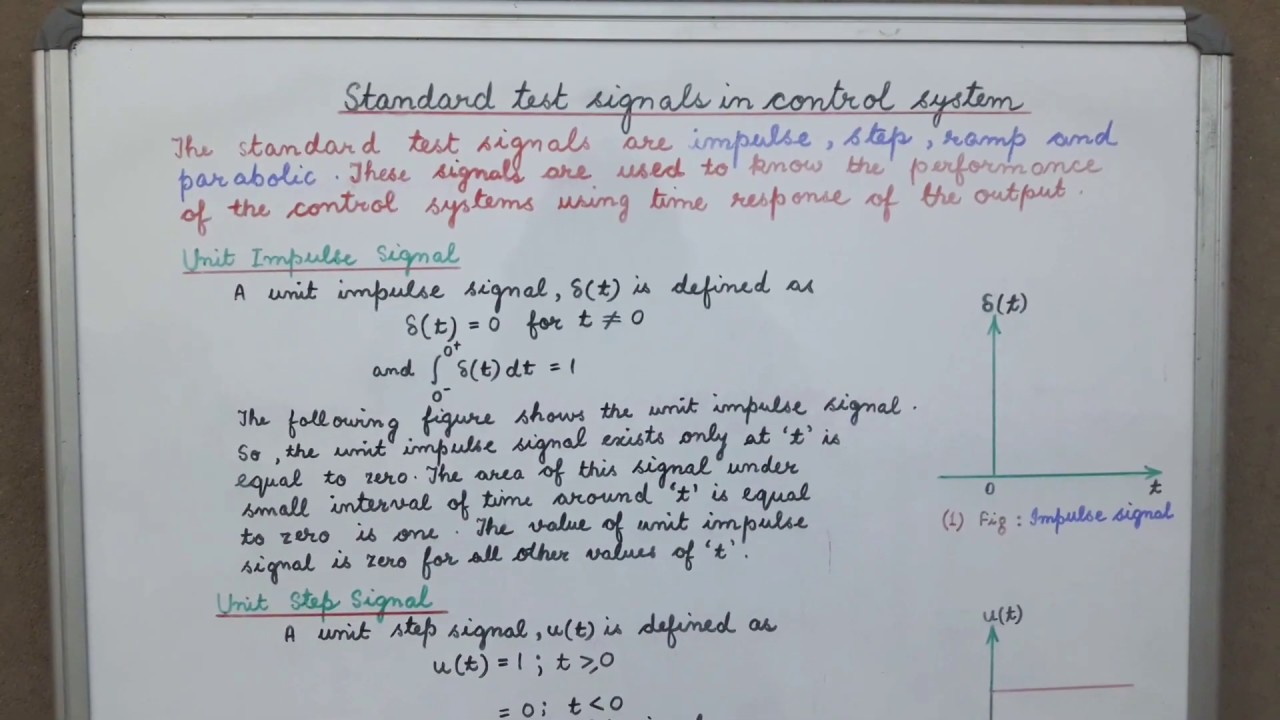 Standard test signals in control system
The standard test signals are impulse, step, ramp and
parabolic. These signals are used to know the performance
of the control systems using time response of the output.
Unit Impulse Signal
A unit impulse signal, δ(t) is defined as
δ(t) = 0 for t ≠ 0
and ∫ δ(t) dt = 1
0⁺
0⁻
The following figure shows the unit impulse signal.
So, the unit impulse signal exists only at 't' is
equal to zero. The area of this signal under
small interval of time around 't' is equal
to zero is one. The value of unit impulse
signal is zero for all other values of 't'.
δ(t)
0
t
(1) Fig : Impulse signal
Unit Step Signal
A unit step signal, u(t) is defined as
u(t) = 1 ; t ≥ 0
= 0 ; t < 0
u(t)